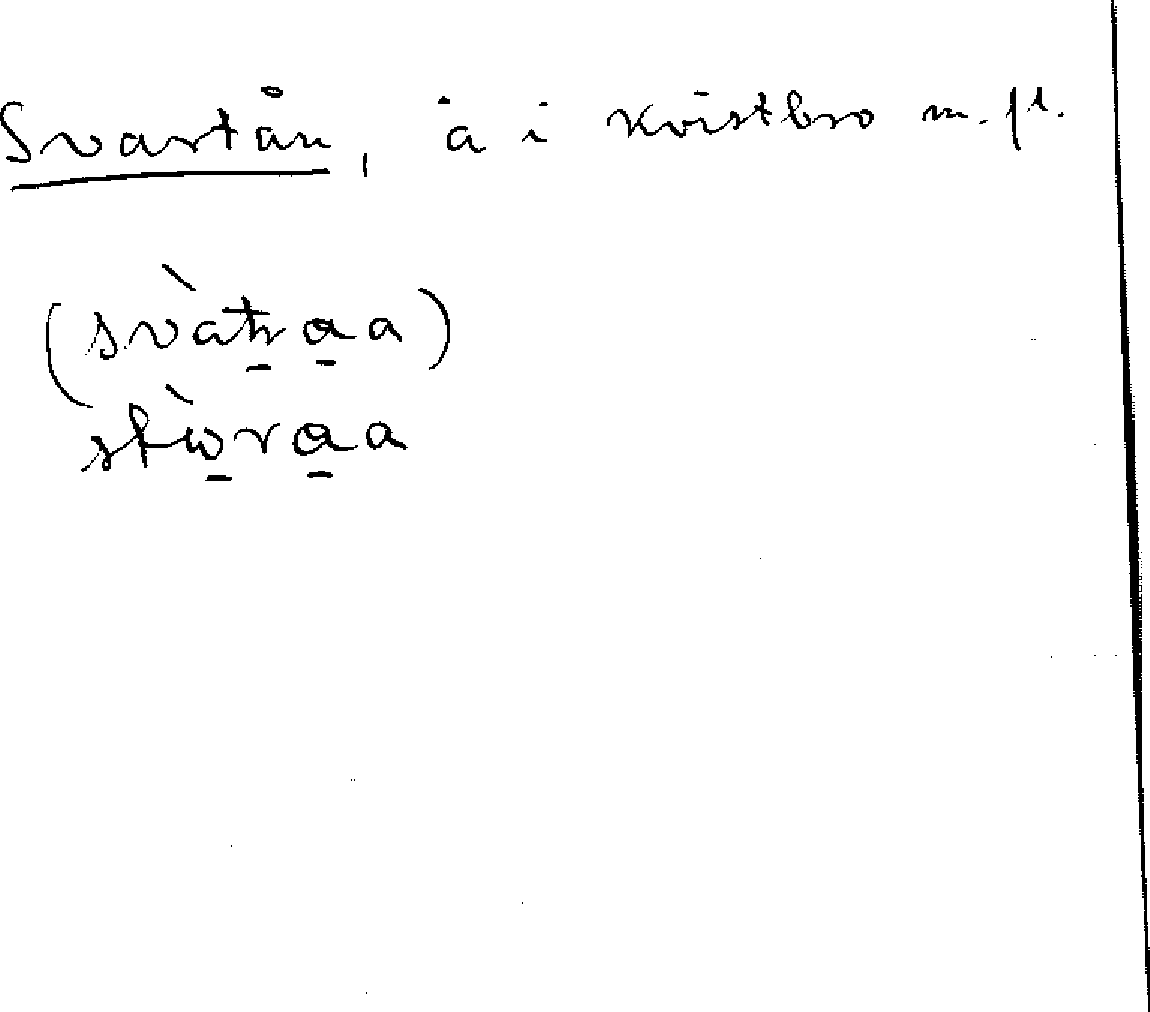 Svartån, å i Kvistbro m.fl.
(svàtṟa̱a)
stò̱ra̱a